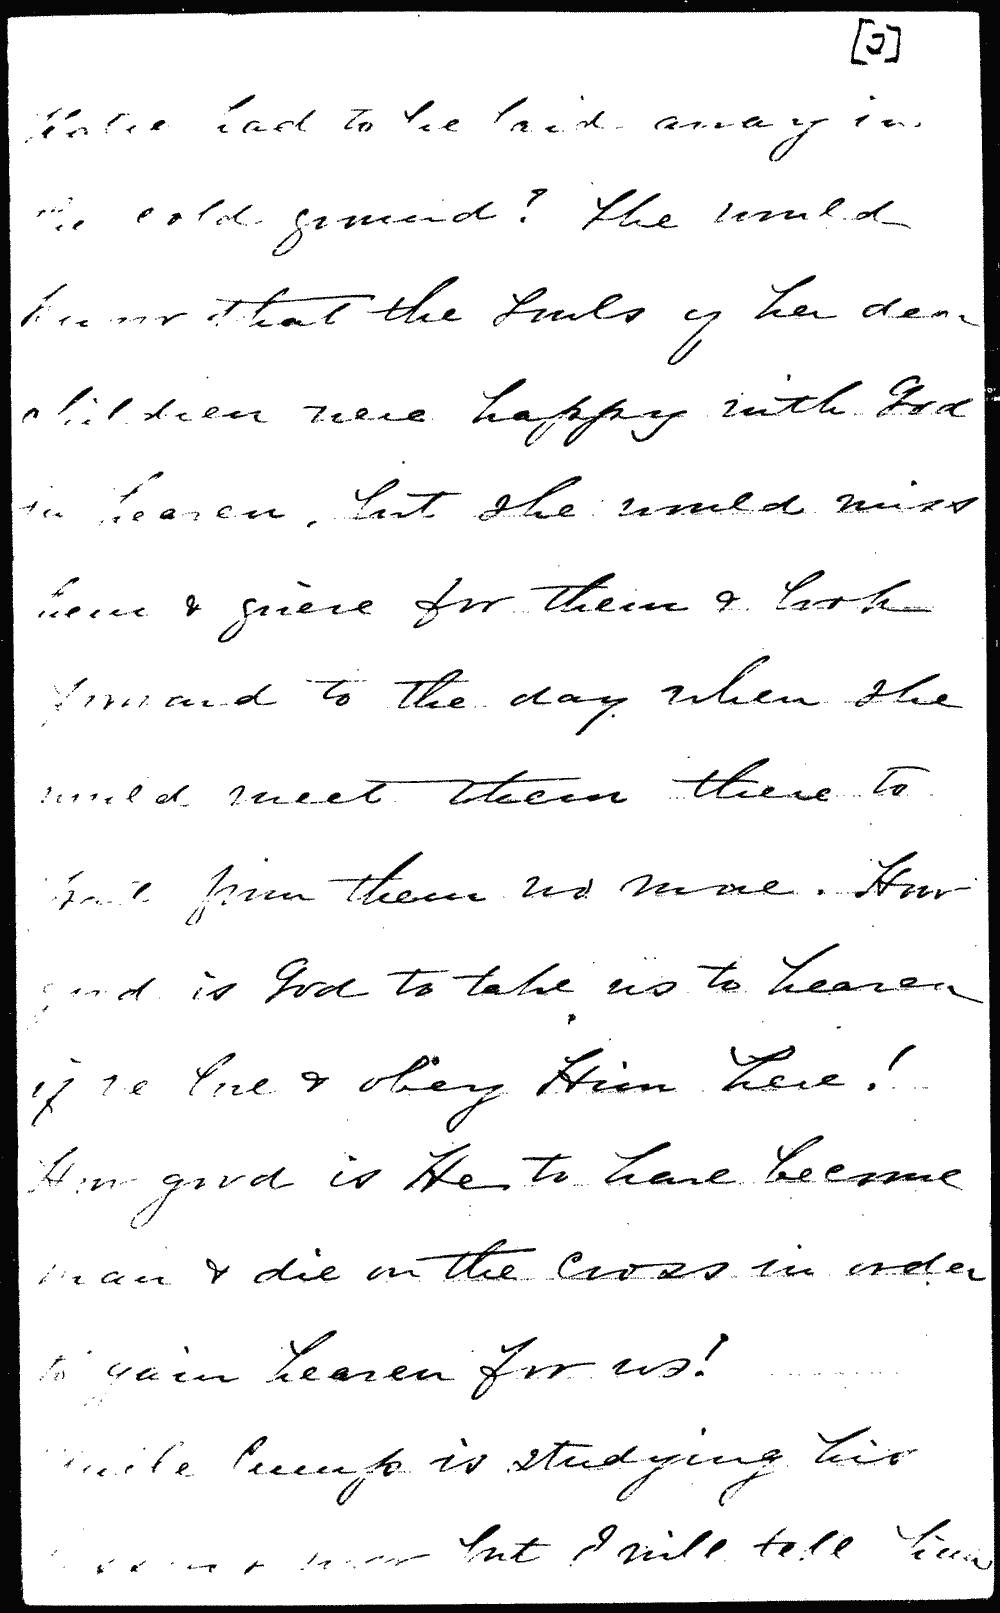 [3]
Katie had to be laid away in
the cold ground? She would
know that the souls of her dear
children were happy with God
in heaven, but she would miss
them & grieve for them & look
forward to the day when she
would meet them there to
part from them no more. How
good is God to take us to heaven
if we love & obey Him here!
How good is He to have become
man & die on the cross in order
to gain heaven for us!
Uncle Cump is studying his
lessons now but I will tell him